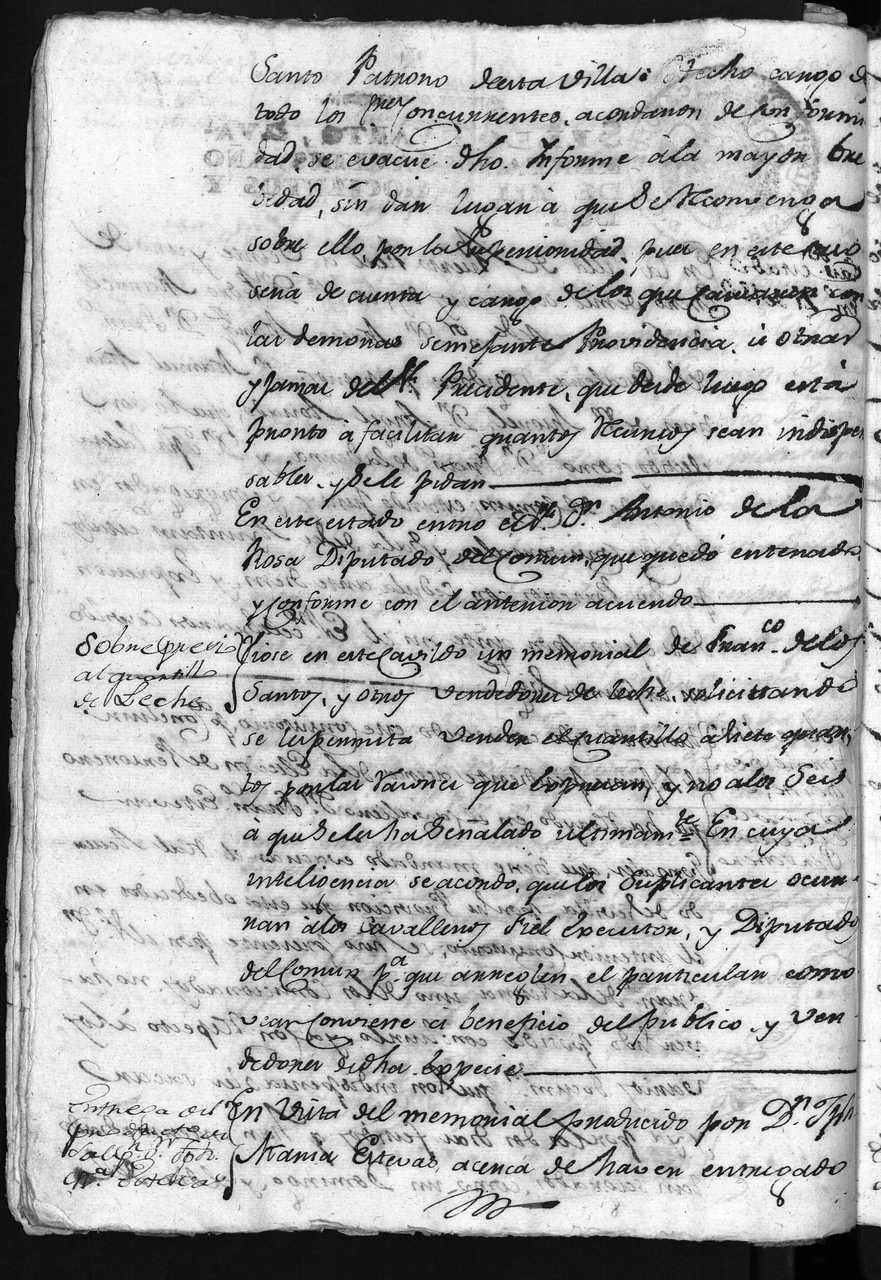 Santo Patrono de esta villa: Hecho cargo de
todo los Sres. Concurrentes, acordaron de conformi
dad, se evacue dho. Informe à la mayor bre
bedad, sin dar lugar à que se Reconvenga
sobre ello, por la Superioridad, pues en este caso
será de cuenta y cargo de los que causaren con
las demoras semejante Providencia, ù otras
y pasar del Sr. Precidente, que desde luego está
pronto à facilitar quantos Recursos sean indispen
sables, y se le pidan
En este estado entro el Sr. Dn. Antonio de la
Rosa Diputado del Comun, que quedó enterado
y conforme con el anterior acuerdo
Sobre precio
al quartillo
de Leche
Viose en este Cavildo un memorial de Franco. de los
Santos, y otros vendedores de leche, solicitando
se les permita vender el quartillo a siete quar
tos por las razones que expresan, y no a los seis
à que se les ha señalado ultimamte. En cuya
inteligencia se acordo, que los suplicantes ocur
ran a los Cavalleros Fiel Executor, y Diputado
del Comun pa. que arreglen el particular como
vean conviene al beneficio del publico, y ven
dedores de dha. especie
Entrega del
Dn. Jph.
Ma. Esteva
En vista del memorial producido por Dn. Jph
Maria Estevas, acerca de haver entregado